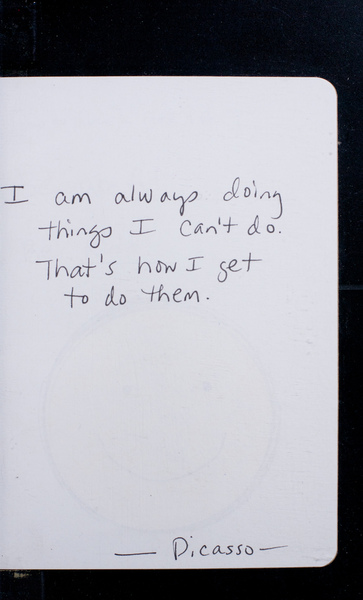 I am always doing
things I can't do.
That's how I get
to do them.
— Picasso —